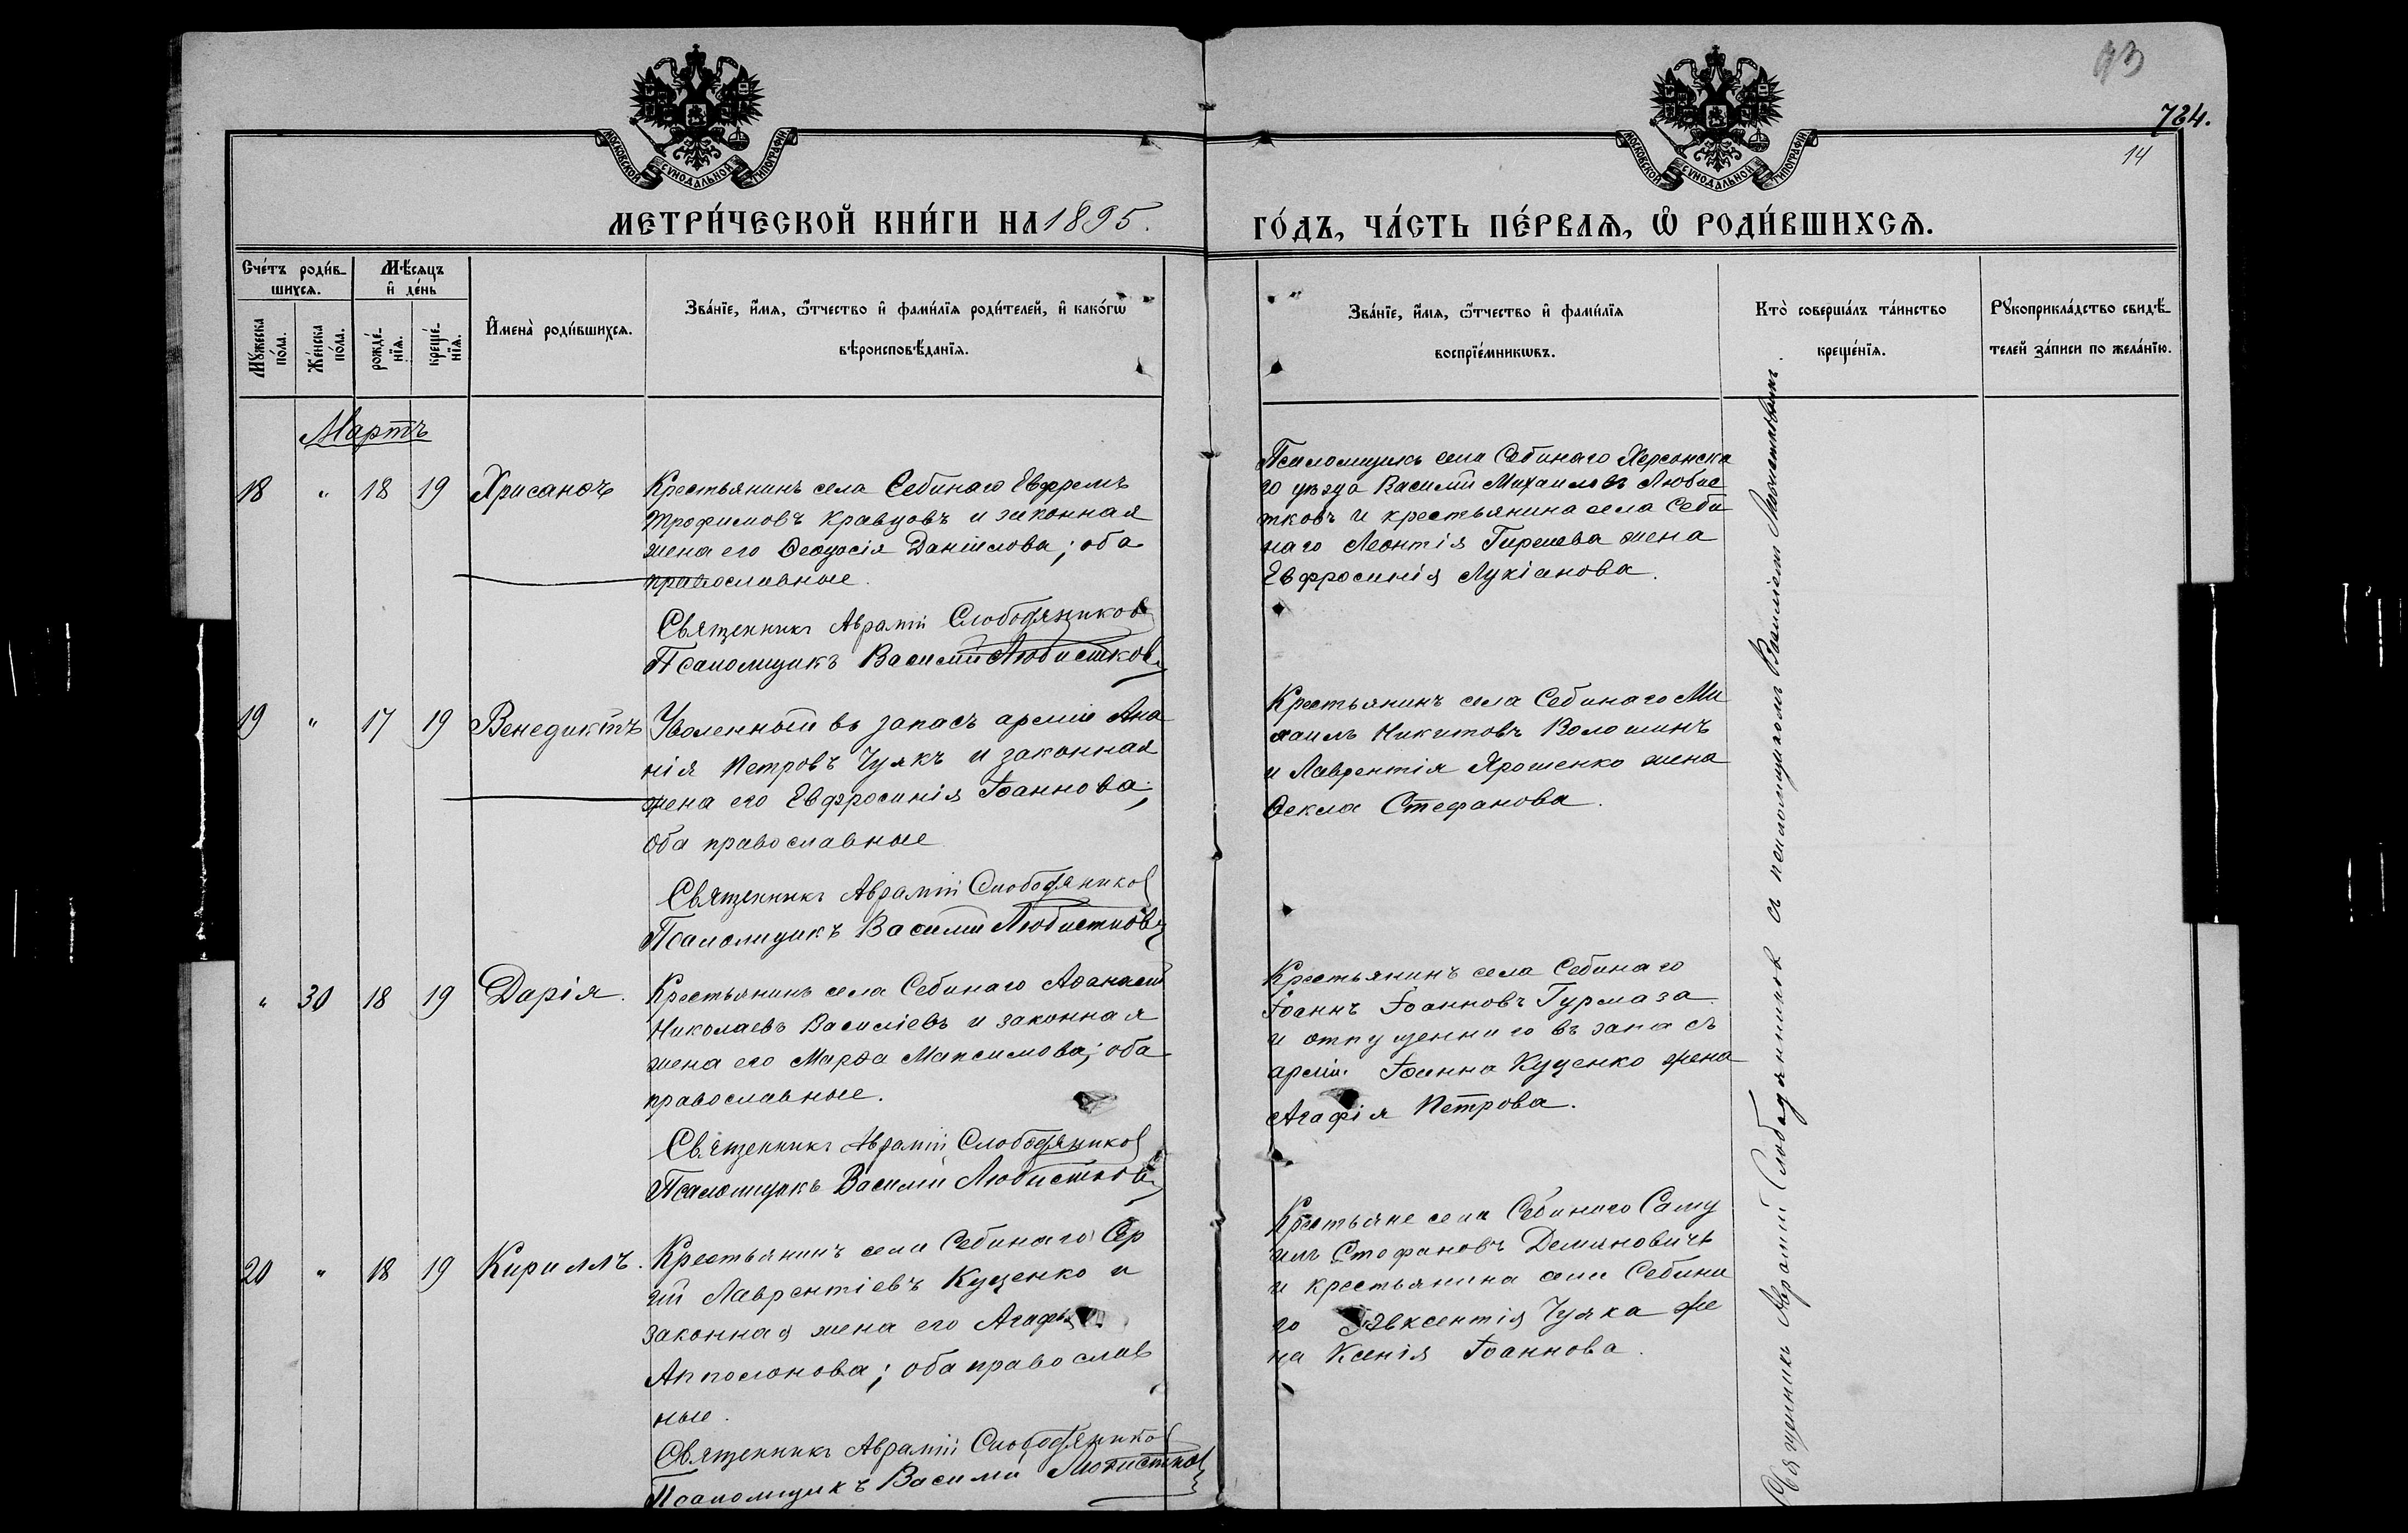 93
724.
14
МОСКОВСКОЙ СѴНОДАЛЬНОЙ ТИПОГРАФІИ
МОСКОВСКОЙ СѴНОДАЛЬНОЙ ТИПОГРАФІИ
МЕТРИ́ЧЕСКОЙ КНИ́ГИ НА 1895.
ГО́ДЪ, ЧА́СТЬ ПЕ́РВАѦ, Ѡ РОДИ́ВШИХСѦ.
Сче́тъ роди́в-
шихсѧ.
Мѣ́сѧцъ
и҆ де́нь
Мꙋ́жеска по́ла.
Же́нска по́ла.
рожде́-
нїѧ.
креще́-
нїѧ.
И҆мена̀ роди́вшихсѧ.
Зва́нїе, и҆́мѧ, ѻ҆́тчество и҆ фами́лїѧ роди́телей, и҆ како́гѡ
вѣроисповѣ́данїѧ.
Зва́нїе, и҆́мѧ, ѻ҆́тчество и҆ фами́лїѧ
воспрїе́мникѡвъ.
Кто̀ соверша́лъ та́инство
креще́нїѧ.
Рꙋкоприкла́дство свидѣ́-
телей за́писи по жела́нїю.
Мартъ
18 " 18 19 Хрисанѳъ
Крестьянинъ села Себинаго Евфремъ
Трофимовъ Кравцовъ и законная
жена его Ѳеодосія Даніилова; оба
православные.
Священникъ Аврамій Слободяников
Псаломщикъ Василий Любистков
Псаломщикъ села Себинаго Херсонска
го уѣзда Василий Михаиловъ Любис
тковъ и крестьянина села Себи
наго Леонтія Гирешева жена
Евфросинія Лукіанова.
19 " 17 19 Венедиктъ
Уволенный въ запасъ арміи Ана
нія Петровъ Чуякъ и законная
жена его Евфросинія Іоаннова;
оба православные
Священникъ Аврамій Слободяников
Псаломщикъ Василий Любистков
Крестьянинъ села Себинаго Ми
хаилъ Никитовъ Волошинъ
и Лаврентія Ярошенко жена
Ѳекла Стефанова.
" 30 18 19 Дарія.
Крестьянинъ села Себинаго Аѳанасій
Николаевъ Василіевъ и законная
жена его Марѳа Максимова; оба
православные.
Священникъ Аврамій Слободяников
Псаломщикъ Василий Любистков
Крестьянинъ села Себинаго
Іоаннъ Іоанновъ Гурмаза
и отпущеннаго въ запасъ
арміи Іоанна Куценко жена
Агафія Петрова.
20 " 18 19 Кириллъ.
Крестьянинъ села Себинаго Сер
гій Лаврентіевъ Куценко и
законная жена его
Апполонова; оба православ
ные.
Священникъ Аврамій Слободяников
Псаломщикъ Василий Любистков
Крестьяне села Себинаго Саму
илъ Стефановъ Демяновичъ
и крестьянина села Себина
го Авксентія Чуяка же
на Ксенія Іоаннова.
Священникъ Аврамій Слободянников съ псаломщикомъ Василіемъ Любистковымъ.